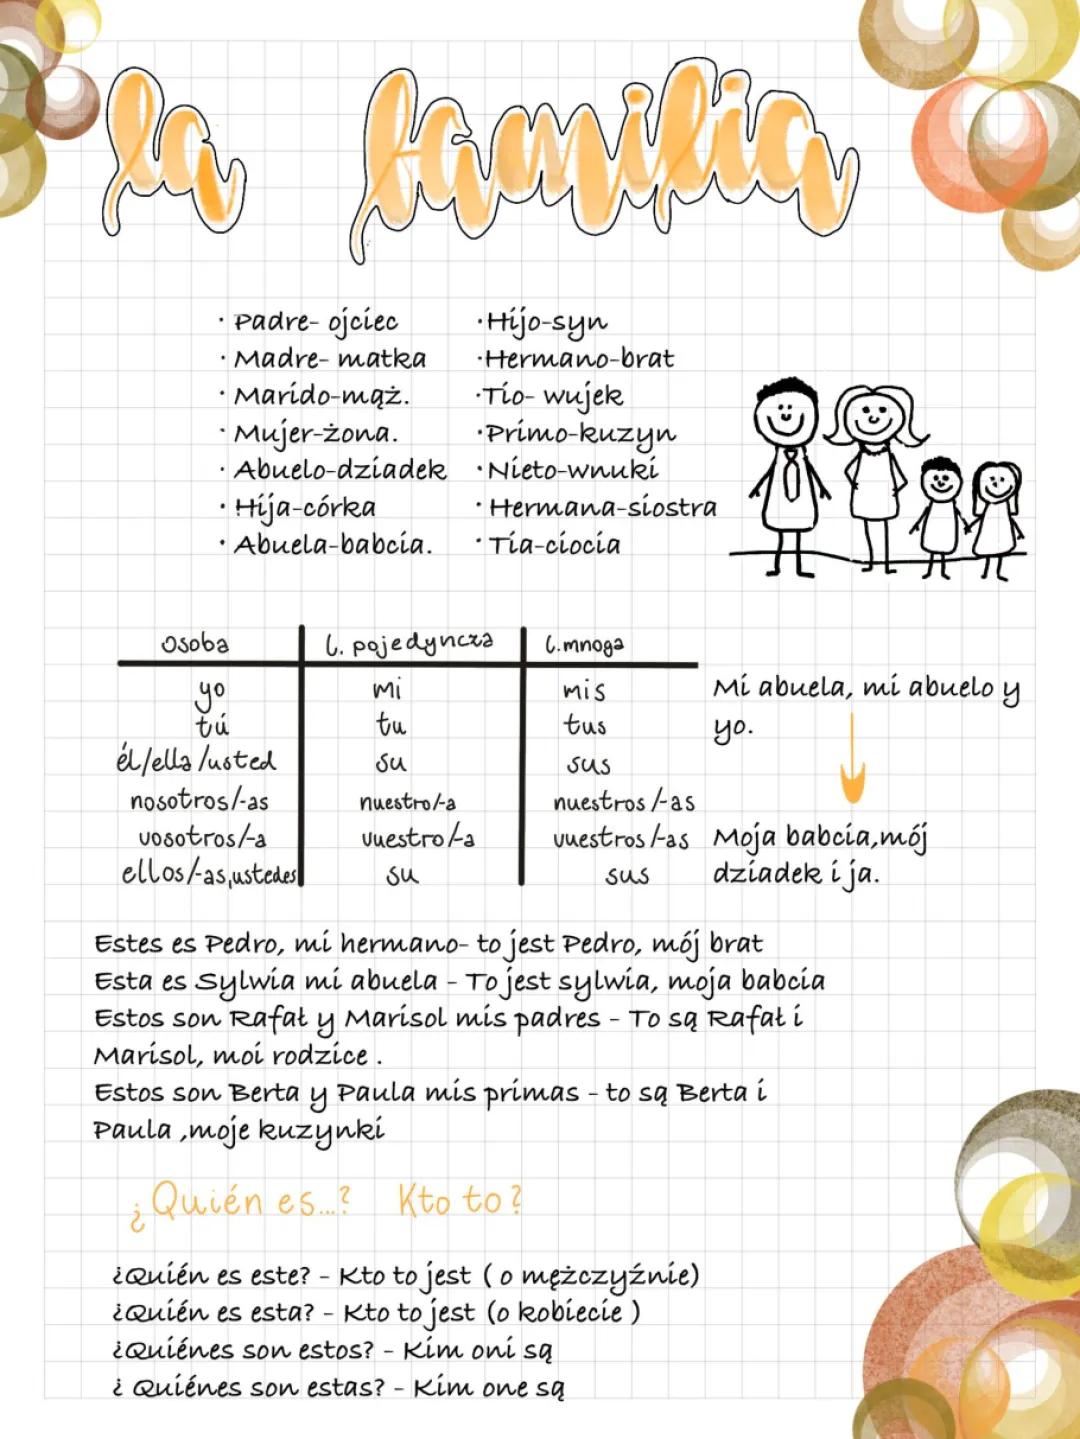 la familia
· Padre- ojciec
· Madre- matka
· Marido-mąż.
· Mujer-żona.
· Abuelo-dziadek
· Hija-córka
· Abuela-babcia.
· Hijo-syn
· Hermano-brat
· Tio- wujek
· Primo-kuzyn
· Nieto-wnuki
· Hermana-siostra
· Tia-ciocia
osoba l. pojedyncza l.mnoga
yo mi mis
tú tu tus
él/ella/usted su sus
nosotros/-as nuestro/-a nuestros/-as
vosotros/-a vuestro/-a vuestros/-as
ellos/-as,ustedes su sus
Mi abuela, mi abuelo y
yo.
Moja babcia,mój
dziadek i ja.
Estes es Pedro, mi hermano- to jest Pedro, mój brat
Esta es Sylwia mi abuela - To jest sylwia, moja babcia
Estos son Rafał y Marisol mis padres - To są Rafał i
Marisol, moi rodzice .
Estos son Berta y Paula mis primas - to są Berta i
Paula ,moje kuzynki
¿Quién es...? Kto to?
¿Quién es este? - Kto to jest ( o mężczyźnie)
¿Quién es esta? - Kto to jest (o kobiecie )
¿Quiénes son estos? - Kim oni są
¿ Quiénes son estas? - Kim one są